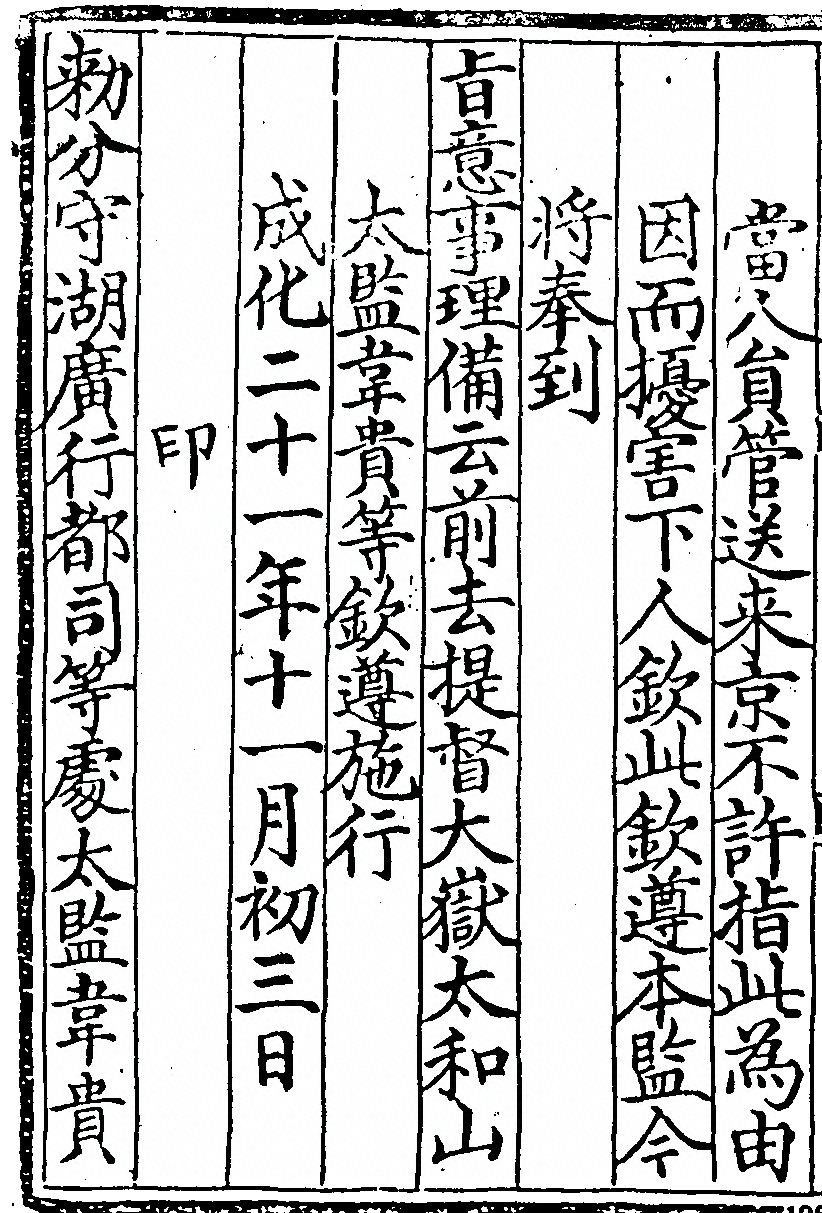 當人負管送来京不許指此為由
因而擾害下人欽此欽遵本監今
將奉到
旨意事理備云前去提督大嶽太和山
太監韋貴等欽遵施行
成化二十一年十一月初三日
印
勑分守湖廣行都司等處太監韋貴